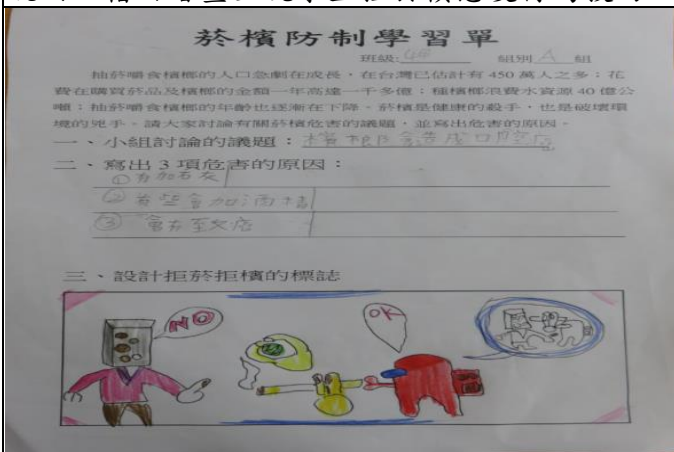 菸檳防制學習單
班級: 組別 A 組
抽菸嚼食檳榔的人口急劇在成長，在台灣已估計有 450 萬人之多；花
費在購買菸品及檳榔的金額一年高達一千多億；種檳榔浪費水資源 40 億公
噸；抽菸嚼食檳榔的年齡也逐漸在下降。菸檳是健康的殺手，也是破壞環
境的兇手。請大家討論有關菸檳危害的議題，並寫出危害的原因。
一、小組討論的議題：檳榔會造成口腔癌
二、寫出 3 項危害的原因：
①有加石灰
②有些會加酒精
③ 會有至癌
三、設計拒菸拒檳的標誌
NO
OK